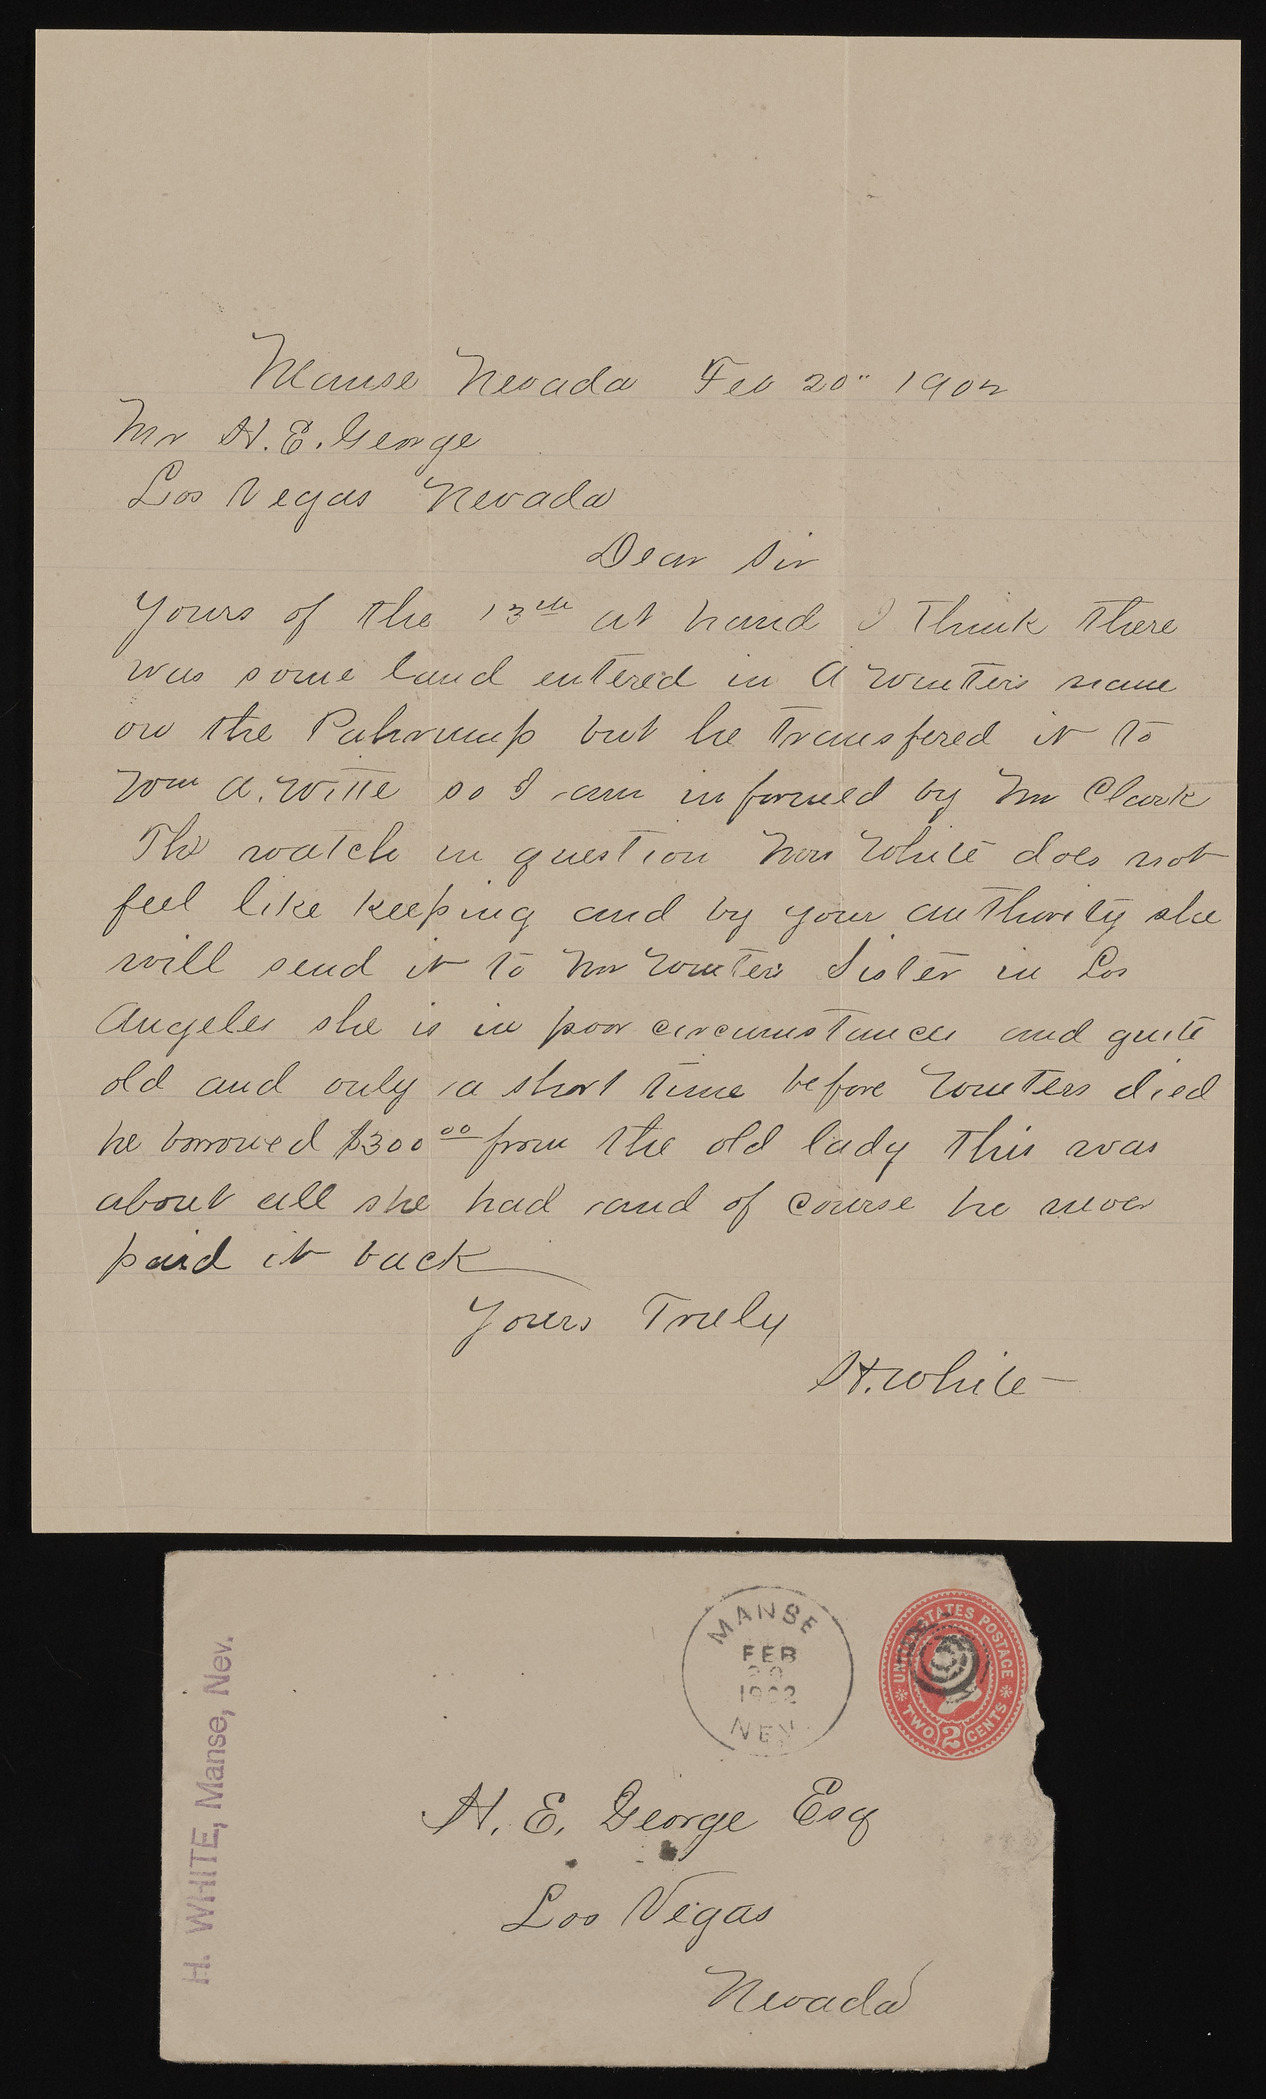 Manse Nevada Feb 20" 1902
Mr H. E. George
Los Vegas Nevada
Dear Sir
Yours of the 13th at hand I think there
was some land entered in A Winters name
on the Pahrump but he transfered it to
Wm A. Witte so I am informed by Mr Clark
The watch in question Mrs White does not
feel like keeping and by your authority she
will send it to Mr Winters Sister in Los
Angeles she is in poor circumstances and quite
old and only a short time before Winters died
he borrowed $300 00 from the old lady this was
about all she had and of course he never
paid it back
Yours Truly
H. White
H. WHITE, Manse, Nev.
MANSE
FEB
1902
NEV.
UNITED STATES POSTAGE
TWO 2 CENTS
H. E. George Esq
Los Vegas
Nevada